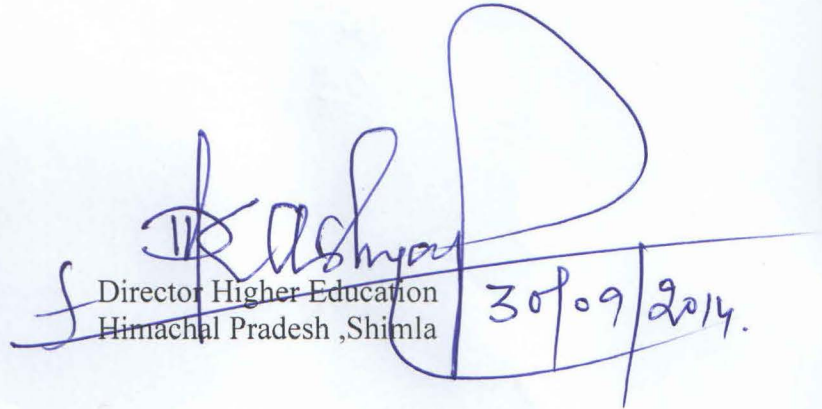 Kashyap
Director Higher Education
Himachal Pradesh ,Shimla
30/09/2014.